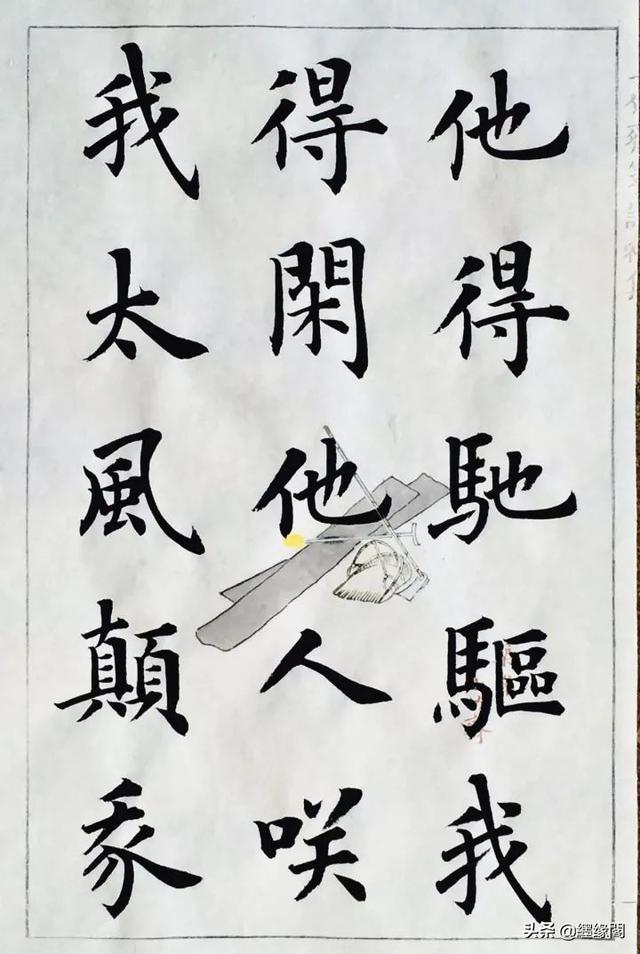 他得馳驅我
得閑他人咲
我太風顛我
头条